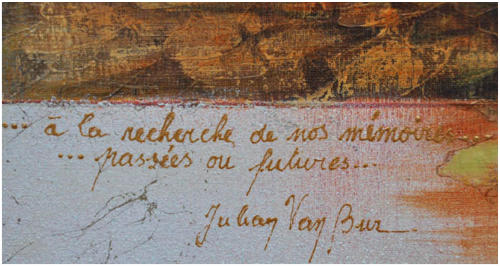 ... à la recherche de nos mémoires...
... passées ou futures...
Julian Van Bur